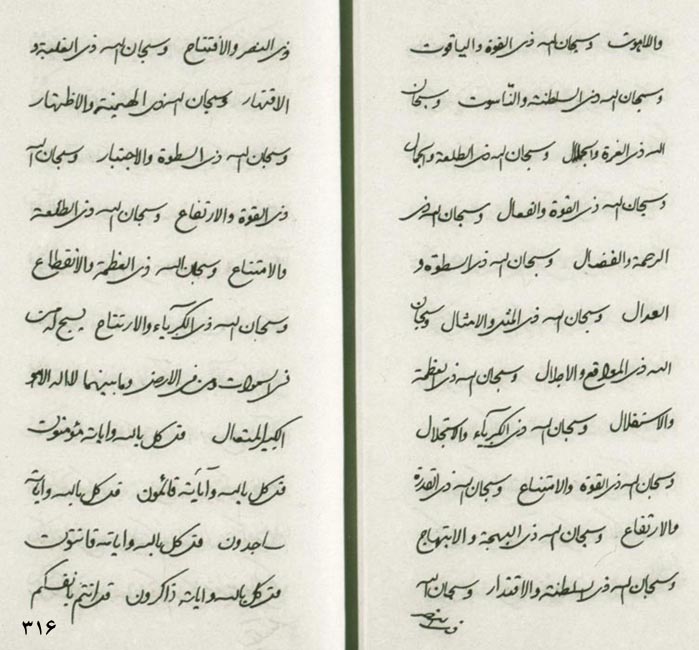 واللاهوت وسبحان الله ذی القوة والیاقوت
وسبحان الله ذی السلطنة والناسوت وسبحان
الله ذی العزة والجلال وسبحان الله ذی الطلعة والجمال
وسبحان الله ذی القوة والفعال وسبحان الله ذی
الرحمة والفضال وسبحان الله ذی السطوة و
العدال وسبحان الله ذی المثل والامثال وسبحان
الله ذی المواقع والاجلال وسبحان الله ذی العظمة
والاستقلال وسبحان الله ذی الکبریاء والاستجلال
وسبحان الله ذی القوة والامتناع وسبحان الله ذی القدرة
والارتفاع وسبحان الله ذی البهجة والابتهاج
وسبحان الله ذی السلطنة والاقتدار وسبحان الله
ذی النصر والافتتاح وسبحان الله ذی الغلبة و
الاقتهار وسبحان الله ذی الهیمنة والاظهار
وسبحان الله ذی السطوة والاجتبار وسبحان الله
ذی القوة والارتفاع وسبحان الله ذی الطلعة
والامتناع وسبحان الله ذی العظمة والانقطاع
وسبحان الله ذی الکبریاء والارتتاح یسبح له من
فی السموات ومن فی الارض وما بینهما لا اله الا هو
الکبیر المتعال قل کل بالله وآیاته مؤمنون
قل کل بالله وآیاته قائمون قل کل بالله وآیاته
ساجدون قل کل بالله وایاته قانتون
قل کل بالله وایاته ذاکرون قل انتم بانفسکم
۳۱۶